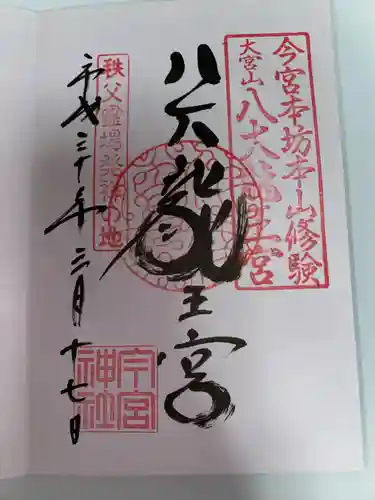 今宮本坊本山修験
大宮山 八大龍王宮
八大龍王宮
秩父靈場発祥の地
平成三十年三月十七日
今宮神社